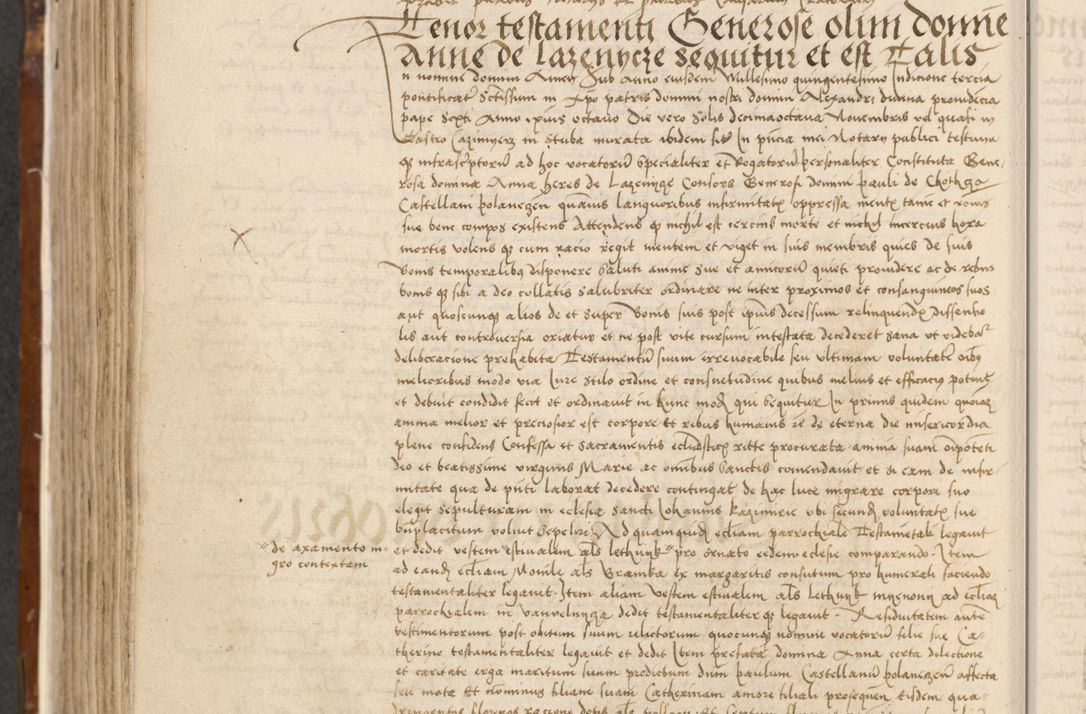 Tenor testamenti Generose olim domne
Anne de lazenycze sequitur et est Talis
n nomine domini Amen Sub Anno eiusdem Millesimo quingentesimo Indicione tercia
pontificatus Sctissimi in xpo patris domini nostri domini Alexandri diuina prouidēcia
pape Sexti Anno ipius octauo Die vero Solis decimaoctaua Nouembris vel quasi in
Castro Cazimyerz in Stuba murata ibidem sita In pñcia mei Notary publici testium
qz infrascriptorū ad hoc vocatorū specialiter et Rogatorū personaliter Constituta Gene-
rosa domina Anna heres de Lazenige Consors Generosi Domini pauli de Chothcza
Castellani polanczen quamuis langoribus infirmitatis oppressa mente tamē et rōnis
sue bene compos existens Attendens qz nichil est cercius morte et nichil incercius hora
mortis volens qz cum racio regit mentem et viget in suis membris quies de suis
bonis temporalibz disponere saluti anime sue et amicorū quieti prouidere ac de rebus
bonis qz sibi a deo collatis salubriter ordinare ne inter proximos et consanguineos suos
aut quoscunqz alios de et super bonis suis post ipius decessum relinquendis Dissensio
lis aut controuersia oriatur et ne post vite cursum intestata decederet sana vt videbat
deliberacione prehabita Testamentū suum irreuocabile seu vltimam voluntatē oibz
melioribus modo via Iure stilo ordine et consuetudine quibus melius et efficacius potuit
et debuit condidit fecit et ordinauit in hunc modū qui sequitur In primis quidem quoniaz
anima melior et preciosior est corpore et rebus humanis iō de eterna dei misericordia
plene confidens Confessa et sacramentis ecclesiasticis ritte procurata animā suam oipotēti
deo et beatissime virginis Marie ac omnibus sanctis comendauit et si eam de infir-
mitate qua de pñti laborat decedere contingat de hac luce migrare corpori suo
elegit sepulturam in ecclesia sancti Iohannis kazimirie vbi secundū voluntatis sue
buplacitum voluit sepeliri Ad quamquidē eccliam parrochialē Testamētalē legauit
et dedit vestem estiualem als lethnyk pro ornato eedem eclesie comparando Item
"de axamento ni-
gro contextam
ad eandē eccliam Monile als Bramka ex margaritis consutum pro humerali faciendo
testamentaliter legauit Item aliam vestem estiualem als Lethnyk ad eccliaz
parrochialem in dedit testamentaliter qz legauit Residuitatem autē
vestimentorum post obitum suum relictorum quocunqz nomine vocatorū filie sue Ca-
therine testamentaliter legauit et dedit Item prefata domina Anna certa dilectione
et caritate erga maritum suum predictum dnm paulum Castellanū polanczen affecta
seu mota et nominus filiam suam Catherinam amore filiali prosequen Eisdem qua-